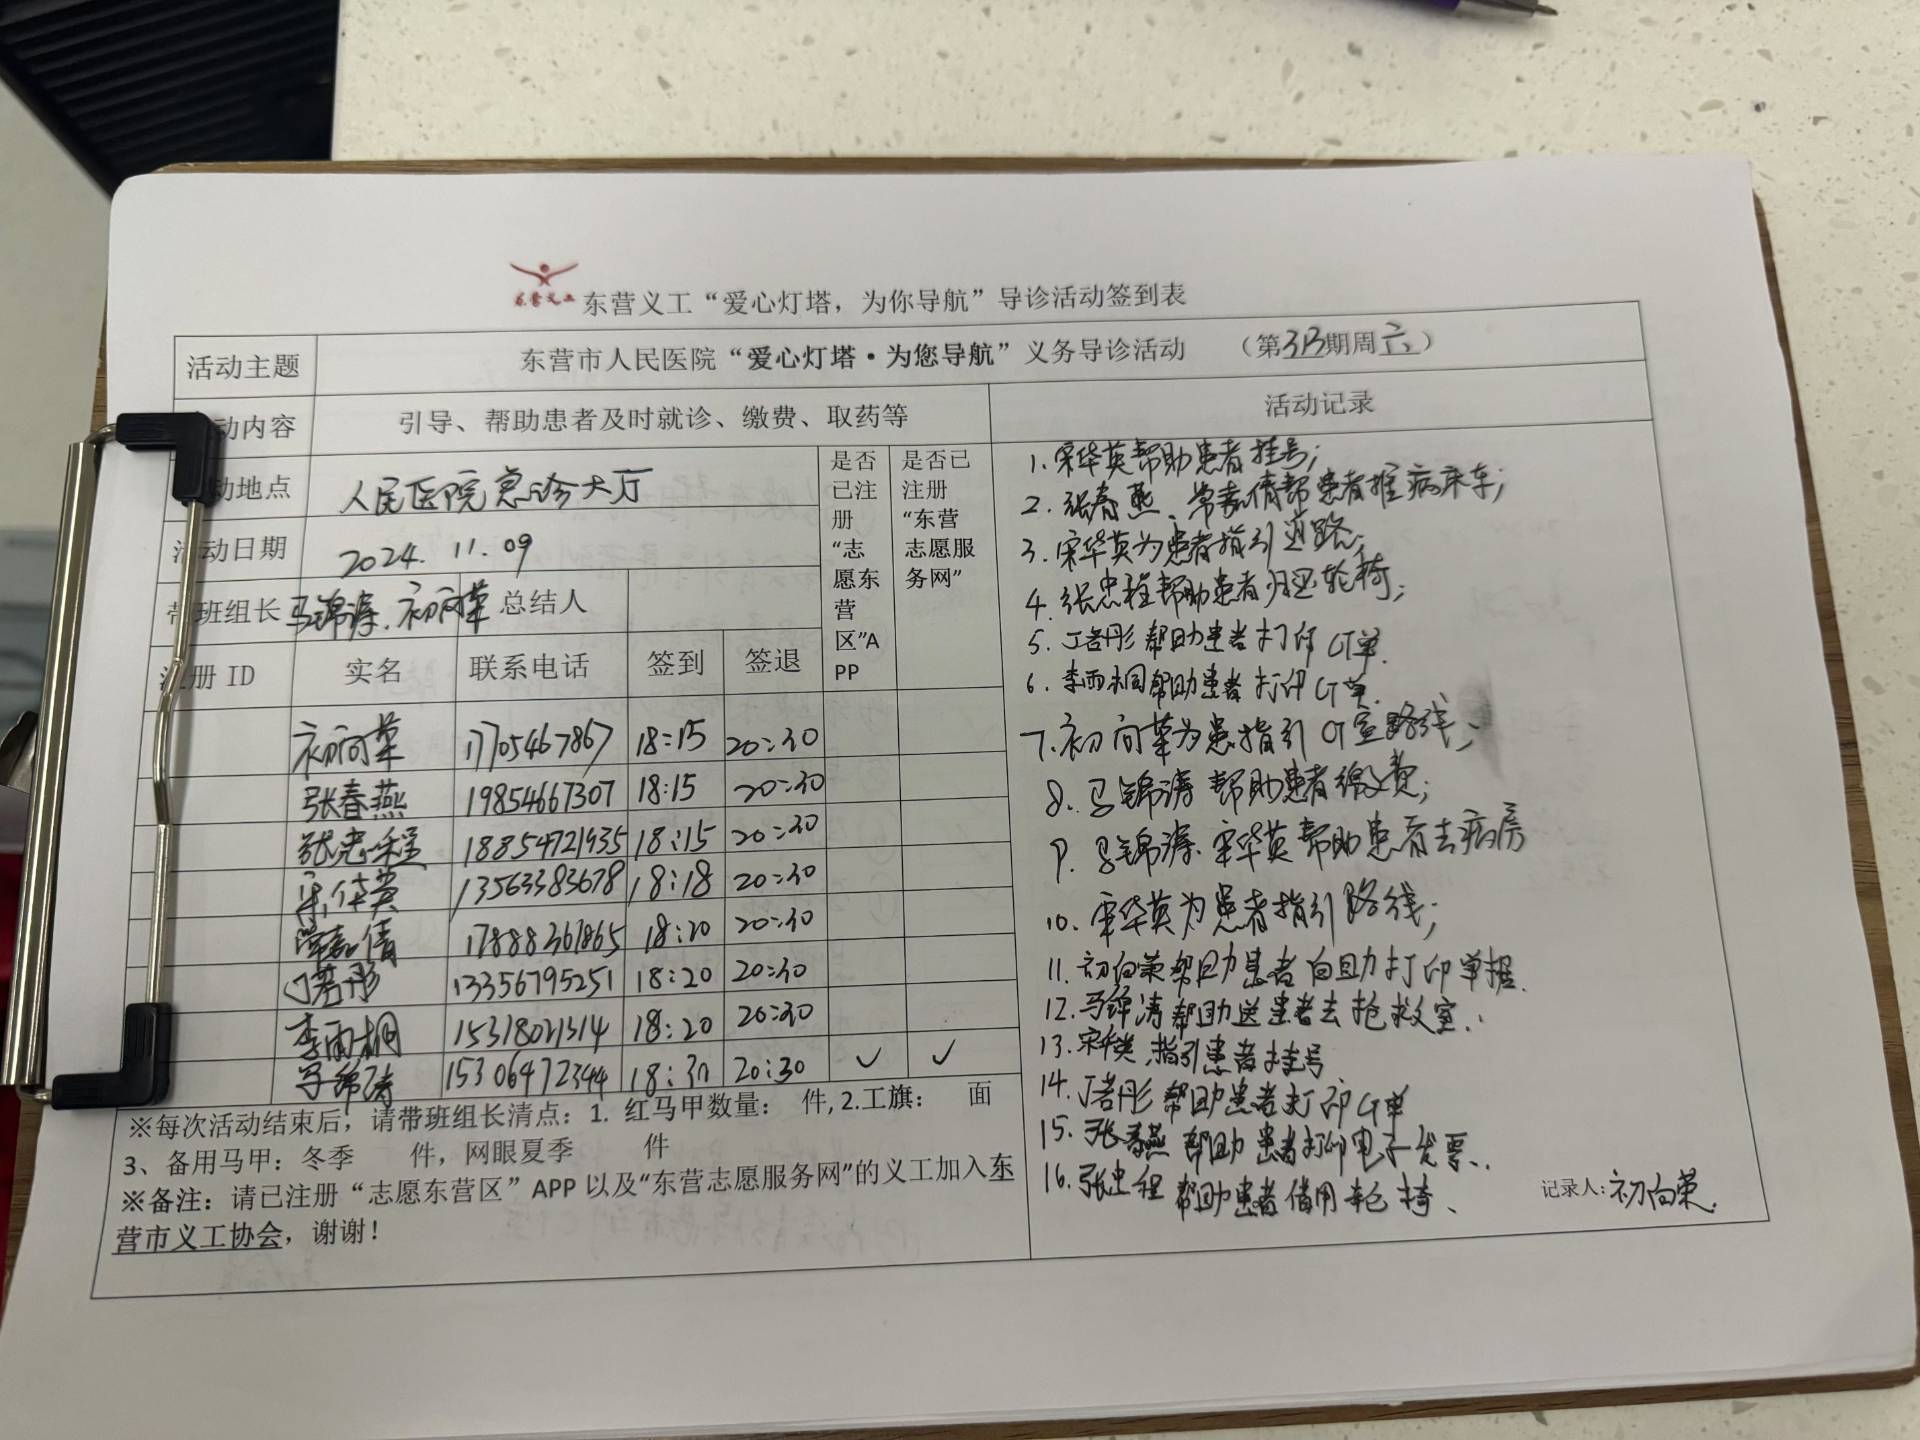 东营义工
东营义工“爱心灯塔，为你导航”导诊活动签到表
活动主题 东营市人民医院“爱心灯塔·为您导航”义务导诊活动 （第313期周六）
动内容 引导、帮助患者及时就诊、缴费、取药等 活动记录
动地点 人民医院急诊大厅
活动日期 2024.11.09
带班组长 马锦涛、初向荣 总结人
是否已注册“志愿东营区”APP
是否已注册“东营志愿服务网”
注册 ID 实名 联系电话 签到 签退
初向荣 17705467867 18:15 20:30
张春燕 19854667307 18:15 20:30
张忠程 18854721935 18:15 20:30
宋华英 13563383678 18:18 20:30
常嘉倩 17888367865 18:20 20:30
丁若彤 13356795251 18:20 20:30
李雨桐 15318021314 18:20 20:30
马锦涛 15306472344 18:30 20:30 ✓ ✓
※每次活动结束后，请带班组长清点：1. 红马甲数量： 件, 2.工旗： 面
3、备用马甲：冬季 件，网眼夏季 件
※备注：请已注册“志愿东营区”APP 以及“东营志愿服务网”的义工加入东
营市义工协会，谢谢！
1. 宋华英帮助患者挂号；
2. 张春燕、常嘉倩帮患者推病床车；
3. 宋华英为患者指引道路；
4. 张忠程帮助患者归还轮椅；
5. 丁若彤帮助患者打印CT单.
6. 李雨桐帮助患者打印CT单.
7. 初向荣为患指引CT室路线；
8. 马锦涛帮助患者缴费；
9. 马锦涛、宋华英帮助患者去病房
10. 宋华英为患者指引路线；
11. 初向荣帮助患者自助打印单据.
12. 马锦涛帮助送患者去抢救室.
13. 宋华英指引患者挂号
14. 丁若彤帮助患者打印CT单
15. 张春燕帮助患者打印电子发票.
16. 张忠程帮助患者借用轮椅、
记录人：初向荣.